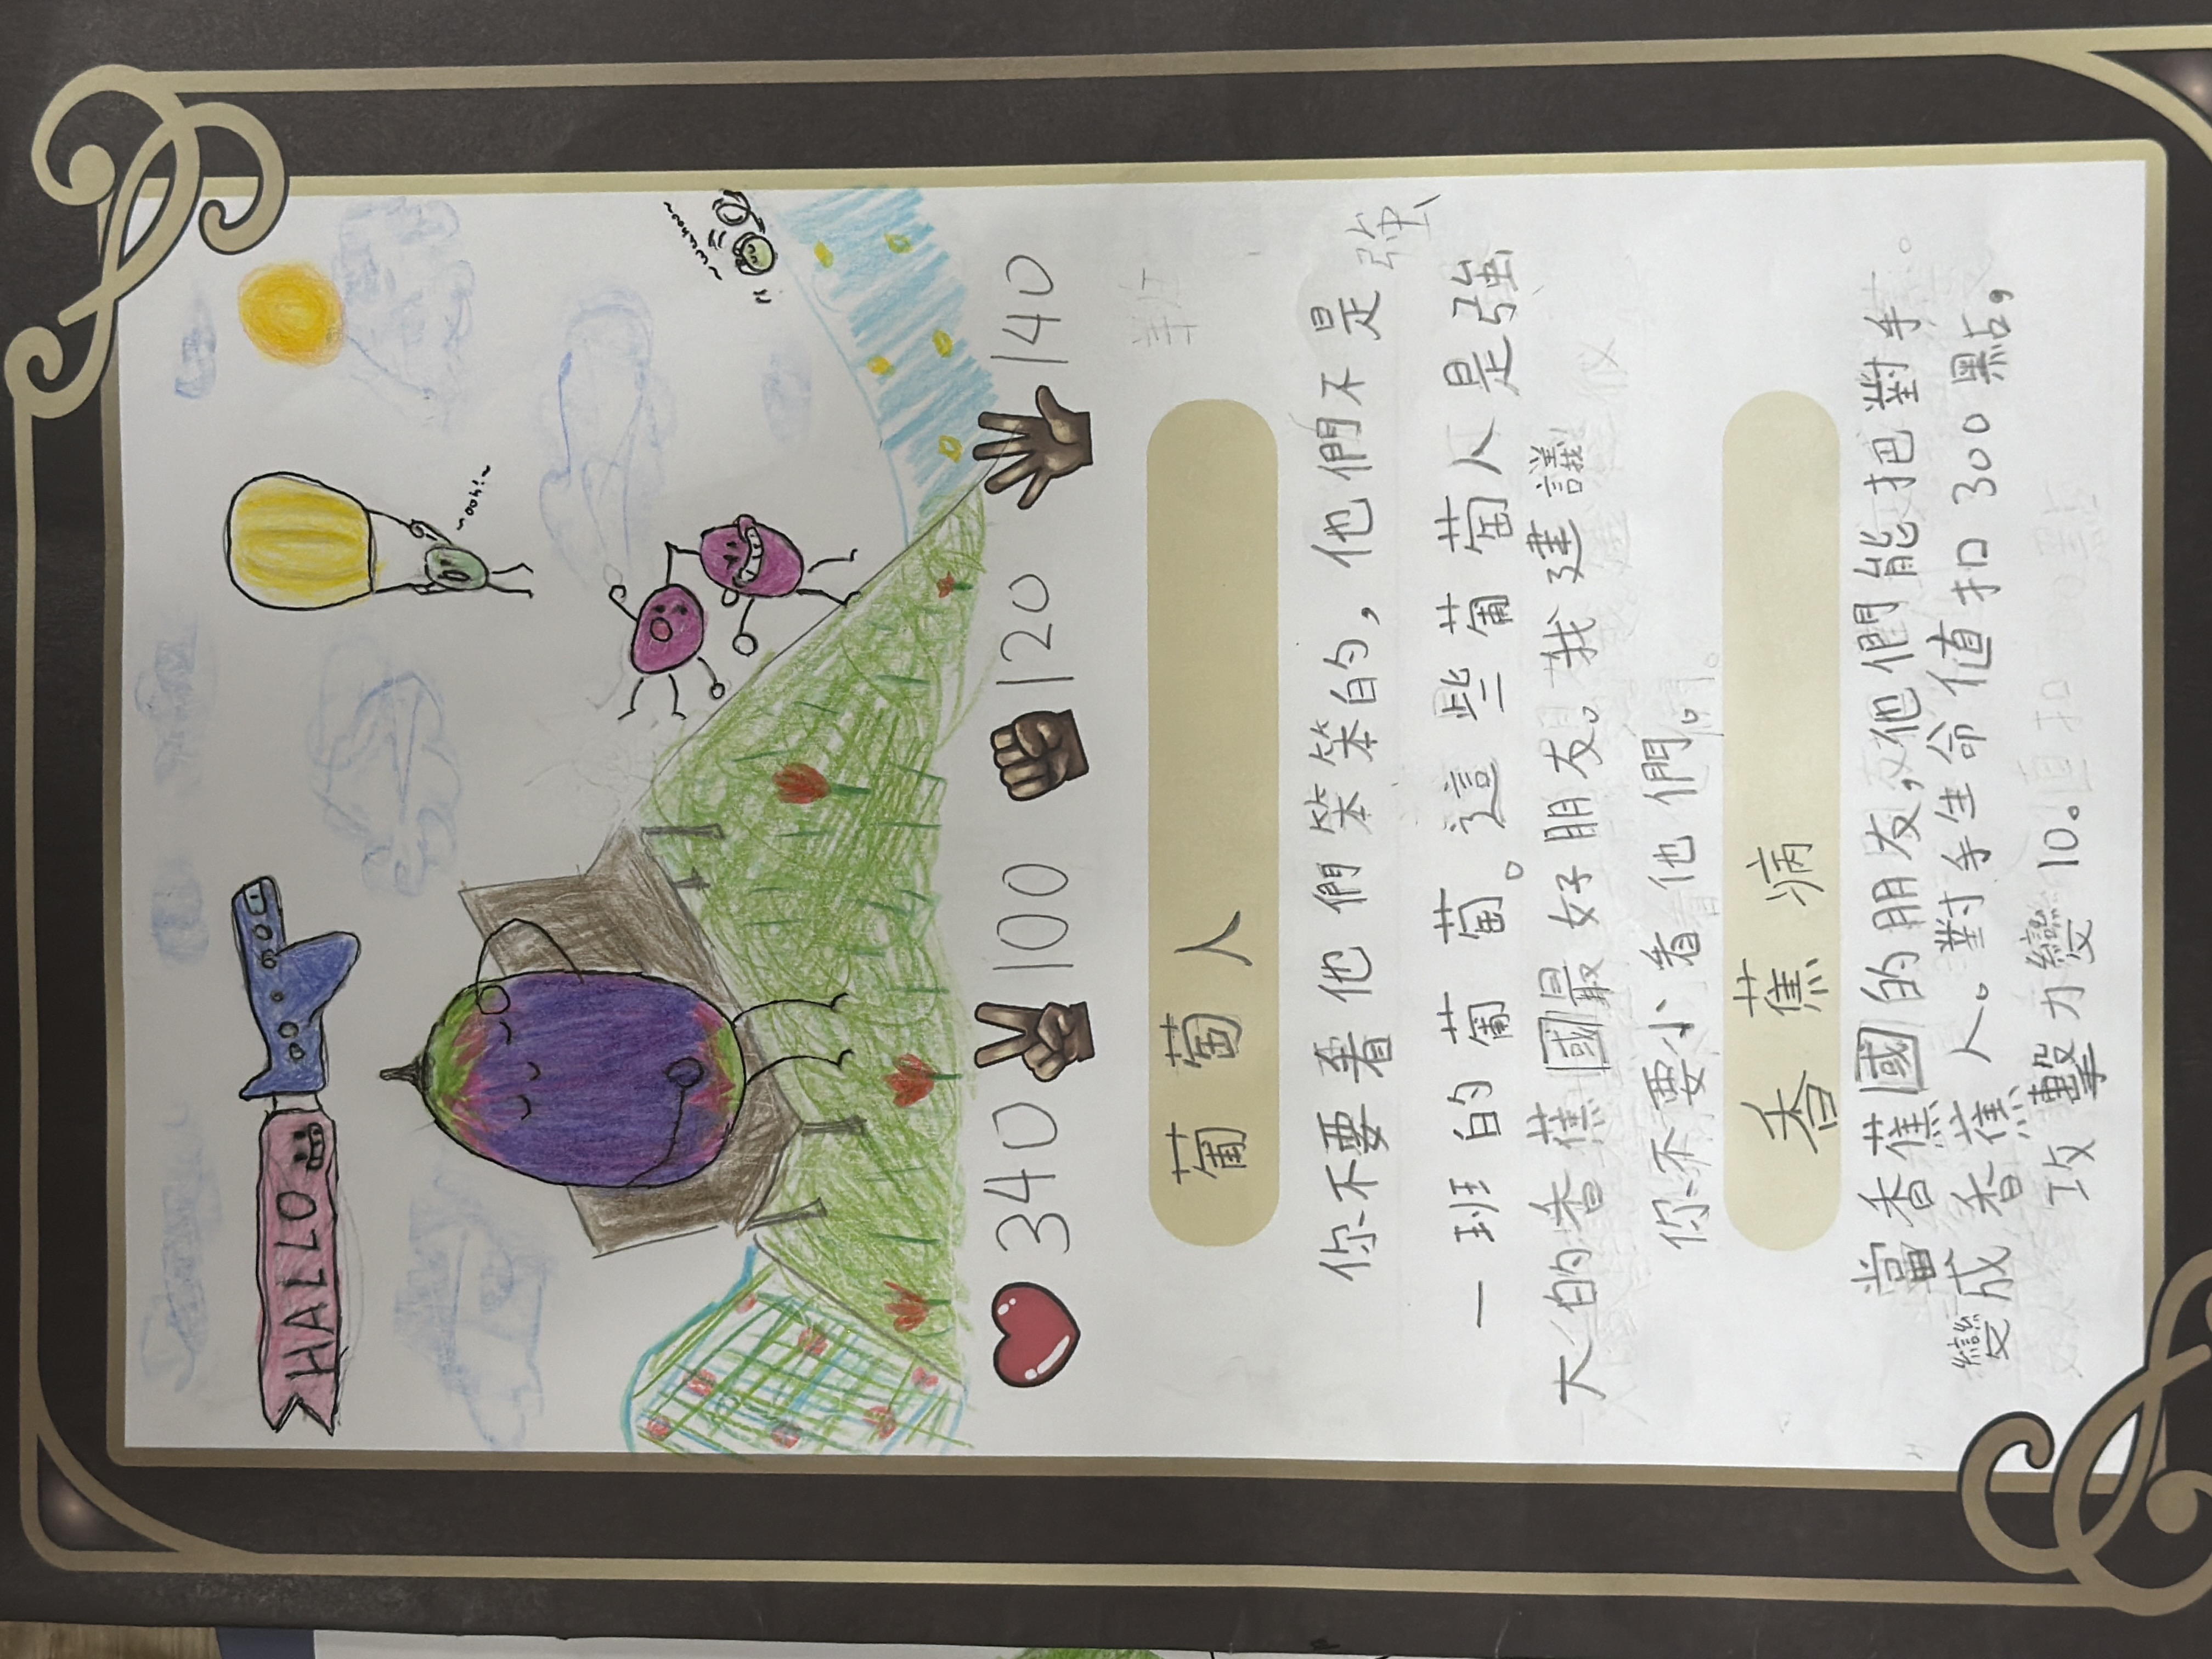 HALLO
~ooh!~
340 100 120 140
葡萄人
你不要看他們笨笨的，他們不是
一班的葡萄。這些葡萄人是強
大的香蕉國最好朋友。我建議
你不要小看他們。
香蕉病
當香蕉國的朋友，他們能把對手
變成香蕉人。對手生命值扣300點，
攻擊力變10。